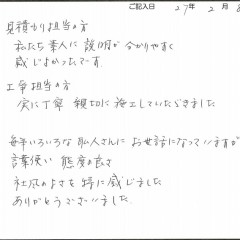 ご記入日 27年 2月 8
見積もり担当の方
私たち素人に説明が分かりやすく
感じよかったです。
工事担当の方
実に丁寧 親切に施工していただきました
毎年いろいろな 職人さんに お世話になっていますが
言葉使い 態度の良さ
社風のよさを特に感じました
ありがとうございました。